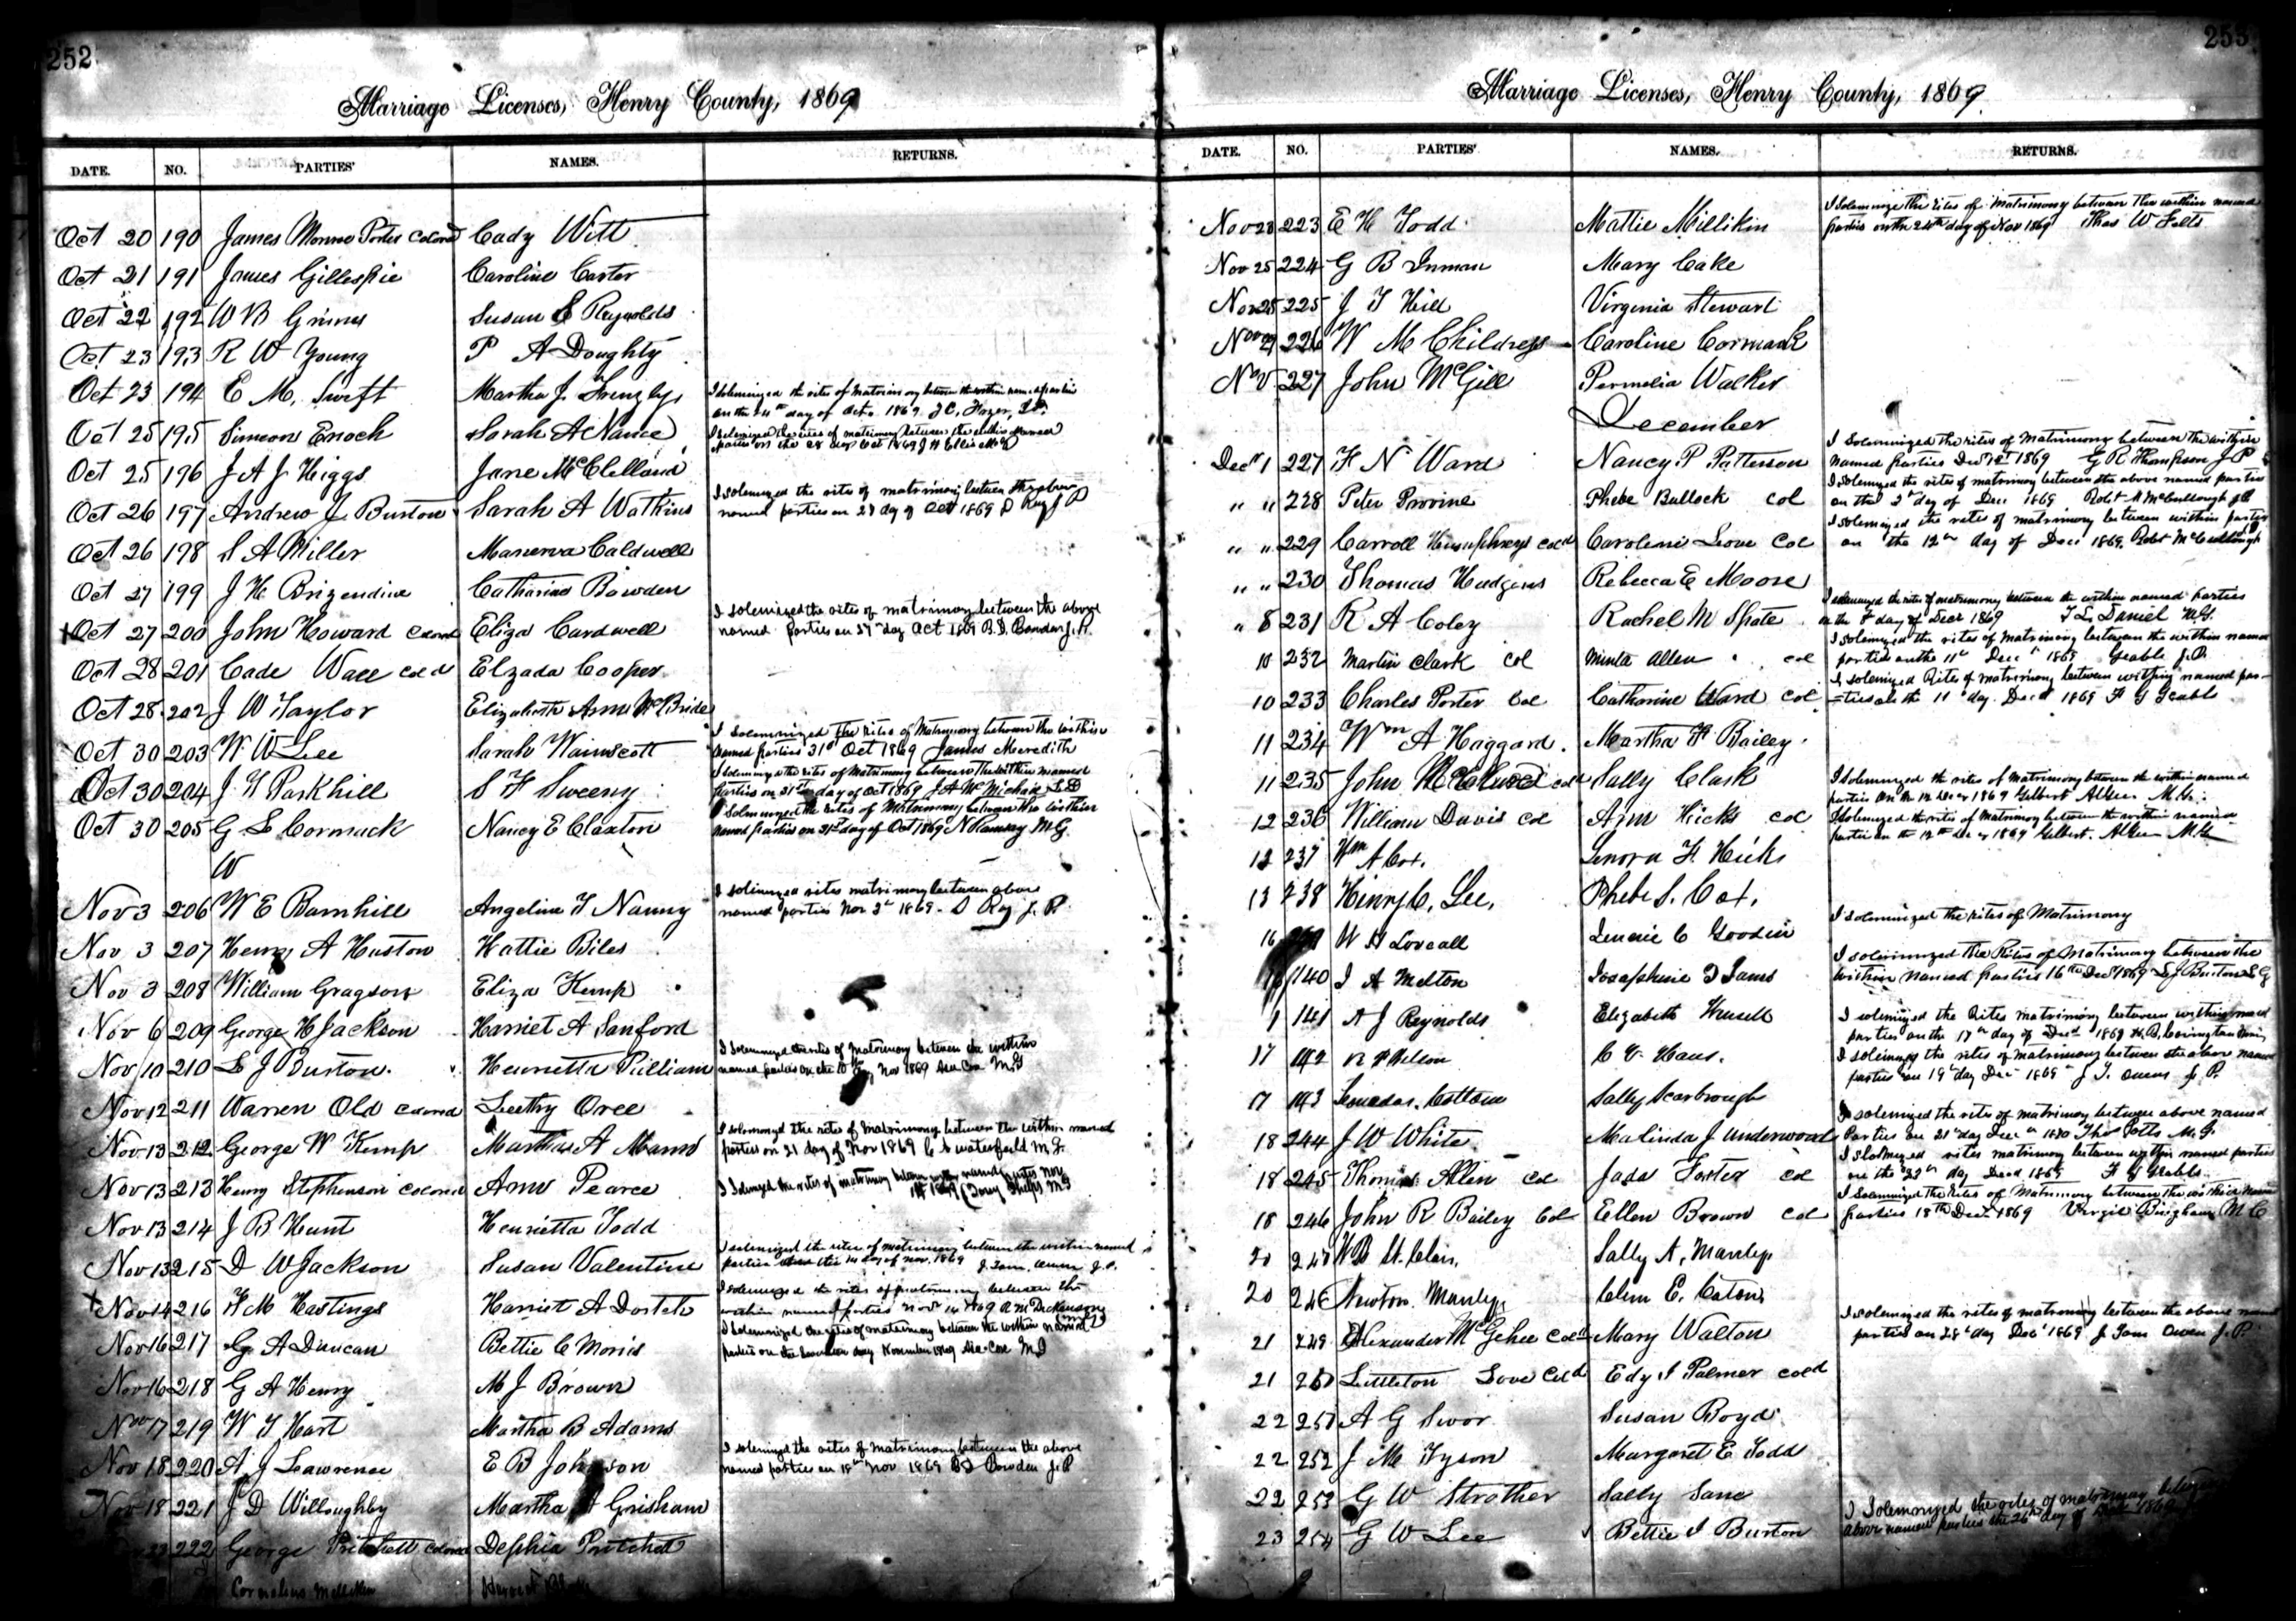 252
Marriage Licenses, Henry County, 1869
DATE. NO. PARTIES' NAMES. RETURNS.
Oct 20 190 James Monroe Porter Colored Cady Witt
Oct 21 191 James Gillespie Caroline Carter
Oct 22 192 W B Grimes Susan E Reynolds
Oct 23 193 R W Young P A Doughty
Oct 23 194 E M. Swift Martha J.
I solemnized the rites of Matrimony between the within named parties
on the 24th day of Oct. 1869 J C. Frazer, J.P.
Oct 25 195 Simeon Enoch Sarah A Nance
I solemnized the rites of matrimony between the within named
parties on the 28 day Oct 1869 J H Ellis MG
Oct 25 196 J A J Higgs Jane McClelland
Oct 26 197 Andrew J. Burton Sarah A Watkins
I solemnized the rites of matrimony between the above
named parties on 28 day of Oct 1869 D Ray J P
Oct 26 198 S A Miller Manerva Caldwell
Oct 27 199 J H Brizendine Catharine Bowden
Oct 27 200 John Howard Colored Eliza Cardwell
I solemnized the rites of matrimony between the above
named parties on 27 day Oct 1869 B.D. Bowden J.P.
Oct 28 201 Cade Wall cold Elzada Cooper
Oct 28 202 J W Taylor Elizabeth Ann McBride
Oct 30 203 W. W Lee Sarah Wainscott
I solemnized the rites of Matrimony between the within
named parties 31st Oct 1869 James Meredith
Oct 30 204 J. H Parkhill S F Sweeny
I solemnized the rites of Matrimony between the within named
parties on 31st day of Oct 1869 J A McMichael
Oct 30 205 G L Cormack Nancy E Claxton
I solemnized the rites of Matrimony between the within
named parties on 31st day of Oct 1869 N Ramsey M.G.
W
Nov 3 206 W E Barnhill Angeline F Nanny
I solemnized rites matrimony between above
named parties Nov 3d 1869. D Ray J. P.
Nov 3 207 Henry A Huston Hattie Biles
Nov 3 208 William Gragson Eliza Kemp
Nov 6 209 George H Jackson Harriet A Sanford
Nov 10 210 L J Burton. Henrietta Pulliam
I solemnized the rites of Matrimony between the within
named parties on the 10th day Nov 1869 Asa Cox M.G
Nov 12 211 Warren Old Colored Leethy Oree
Nov 13 212 George W Kemp Martha A
I solemnized the rites of Matrimony between the within named
parties on 21 day of Nov 1869 C S Waterfield M.G.
Nov 13 213 Henry Stephenson Colored Ann Pearce
I solemnized the rites of matrimony between within named parties Nov
1869
Nov 13 214 J B Hunt Henrietta Todd
Nov 13 215 D W Jackson Susan Valentine
I solemnized the rites of matrimony between the within named
parties the 14 day of Nov. 1869 J. Tom. Owen J.P.
Nov 14 216 H M Hastings Harriet A Dortch
I solemnized the rites of matrimony between the
within named parties Nov 14 1869 A M Dickinson
Nov 16 217 G A Duncan Bettie C Morris
I solemnized the rites of matrimony between the within named
parties on the day November 1869 Asa Cox M G
Nov 16 218 G A Henry M J Brown
Nov 17 219 W T Hart Martha B Adams
Nov 18 220 A. J Lawrence E B Johnson
I solemnized the rites of matrimony between the above
named parties on 18th Nov 1869 B D Bowden J.P
Nov 18 221 J D Willoughby Martha A Grisham
23 222 George Pritchett Colored Delphia Pritchett
Cornelius Milliken Harriet
253
Marriage Licenses, Henry County, 1869
DATE. NO. PARTIES' NAMES. RETURNS.
Nov 23 223 E H Todd Mattie Millikin
I solemnize the rites of Matrimony between the within named
parties on the 24th day of Nov 1869 Thos W Felts
Nov 25 224 G B Inman Mary Cake
Nov 25 225 J T Hill Virginia Stewart
Nov 29 226 W M Childress Caroline Cormack
Nov 227 John McGill Permelia Walker
December
Decr 1 227 H N Ward Nancy P Patterson
I solemnized the rites of Matrimony between the within
named parties Dec 1st 1869 G R Thompson J P
" " 228 Peter Provine Phebe Bullock col
I solemnized the rites of matrimony between the above named parties
on the 2d day of Dec 1869 Robt McCullough
" " 229 Carroll Humphreys cold Caroline Love Col
I solemnized the rites of matrimony between within parties
on the 12th day of Dec 1869. Robt McCullough
" " 230 Thomas Hudgins Rebecca E Moore
" 8 231 R A Coley Rachel M Spate
I solemnized the rites of matrimony between the within named parties
on the 8 day of Decr 1869 T L Daniel M.G.
10 232 Martin Clark Col Minta Allen col
I solemnized the rites of Matrimony between the within named
parties on the 11th Dec 1869 J.P.
10 233 Charles Porter Col Catharine Ward col
I solemnized Rites of matrimony between within named par-
=ties on the 11 day. Decr 1869
11 234 Wm A Haggard. Martha F Bailey.
11 235 John McClure cold Sally Clark
I solemnized the rites of matrimony between the within named
parties on the 12 Decr 1869 Gilbert Alger M.G.
12 236 William Davis Col Ann Hicks col
I solemnized the rites of Matrimony between the within named
parties on the 12th Decr 1869 Gilbert. Alger M.G
12 237 Wm A Cox. Lenora F. Hicks
13 238 Henry C. Lee, Phebe S. Cox.
I solemnized the rites of Matrimony
16 W H Loveall Jennie C Goodin
16 140 J A Melton Josephine D Iams
I solemnized the Rites of Matrimony between the
within named parties 16th Dec 1869 L J Burton
1 141 A J Reynolds Elizabeth
I solemnized the Rites matrimony between within named
parties on the 17th day of Decr 1869
17 142
I solemnized the rites of matrimony between the above named
parties on 19 day Dec 1869 J T. Owens J. P.
17 143 Cottom Sally Scarbrough
18 244 J W White Malinda J Underwood
I solemnized the rites of matrimony between above named
Parties on 21 day Dec Thos Potts M.G.
18 245 Thomas Allen Col Foster col
I solemnized rites matrimony between within named parties
on the day Decr 1869
18 246 John R Bailey Col Ellen Brown col
I solemnized the Rites of Matrimony between the within named
parties 18th Decr 1869 Virgil Bingham M G
20 247 W B St. Clair, Sally A. Manley
20 248 Newton Manley Clem E. Caton
21 249 Alexander McGehee Cold Mary Walton
I solemnized the rites of matrimony between the above named
parties on 28th day Decr 1869 J Tom Owen J.P.
21 250 Littleton Love Cold Edy J Palmer cold
22 251 A G Swor Susan Boyd
22 252 J M Tyson Margaret E Todd
22 253 G W Strother Sally Lane
23 254 G W Lee Bettie J Burton
I Solemnized the rites of matrimony between
above named parties the 26th day of 1869